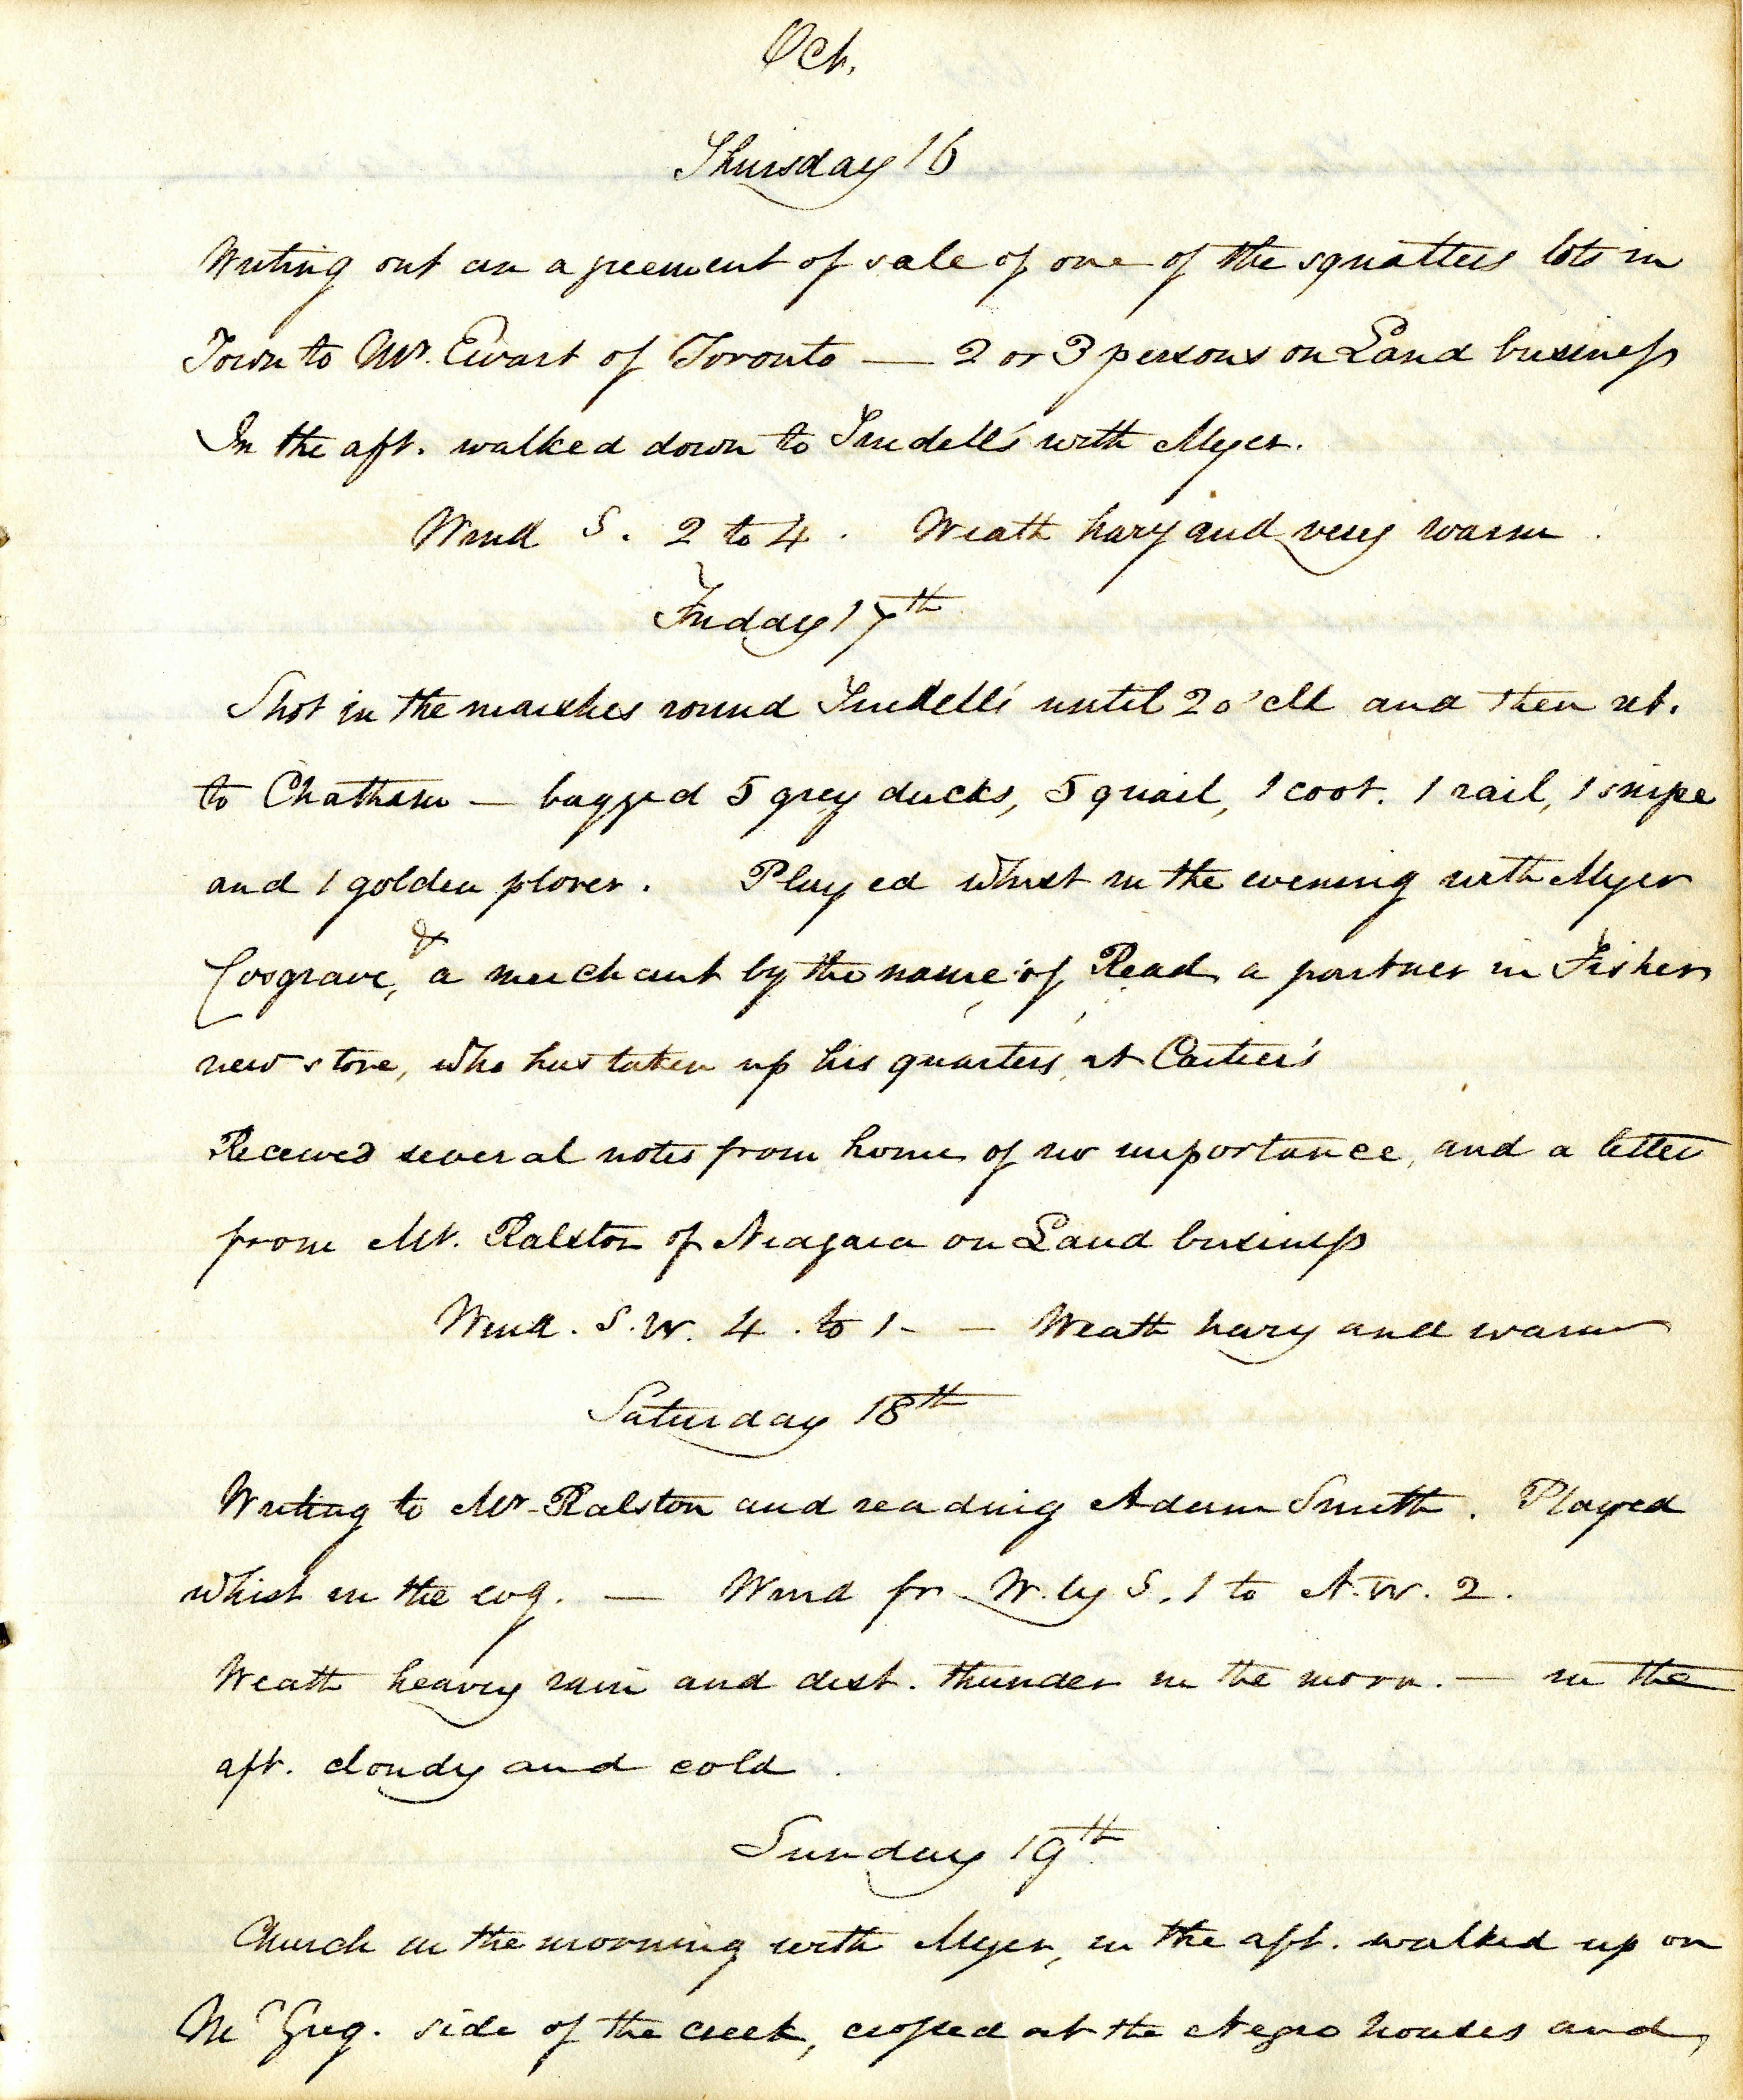 Oct.
Thursday 16
Writing out an agreement of sale of one of the squatters lots in
Town to Mr. Ewart of Toronto — 2 or 3 persons on Land business
In the aft. walked down to Trudell's with Myer.
Wind S. 2 to 4. Weath hazy and very warm.
Friday 17th
Shot in the marshes round Trudell's until 2 o'clk and then ret.
to Chatham — bagged 5 grey ducks, 5 quail, 1 coot. 1 rail, 1 snipe
and 1 golden plover. Played whist in the evening with Myer
Cosgrave, & a merchant by the name of Read a partner in Fishers
new store, who has taken up his quarters, at Cartier's
Received several notes from home of no importance, and a letter
from Mr. Ralston of Niagara on Land business
Wind. S.W. 4. to 1 - — Weath hazy and warm
Saturday 18th
Writing to Mr Ralston and reading Adam Smith. Played
whist in the evg. — Wind fr W. by S. 1 to N.W. 2.
Weath heavy rain and dist. thunder in the morn. — in the
aft. cloudy and cold.
Sunday 19th
Church in the morning with Myer, in the aft. walked up on
McGreg. side of the creek, crossed at the Negro houses and,